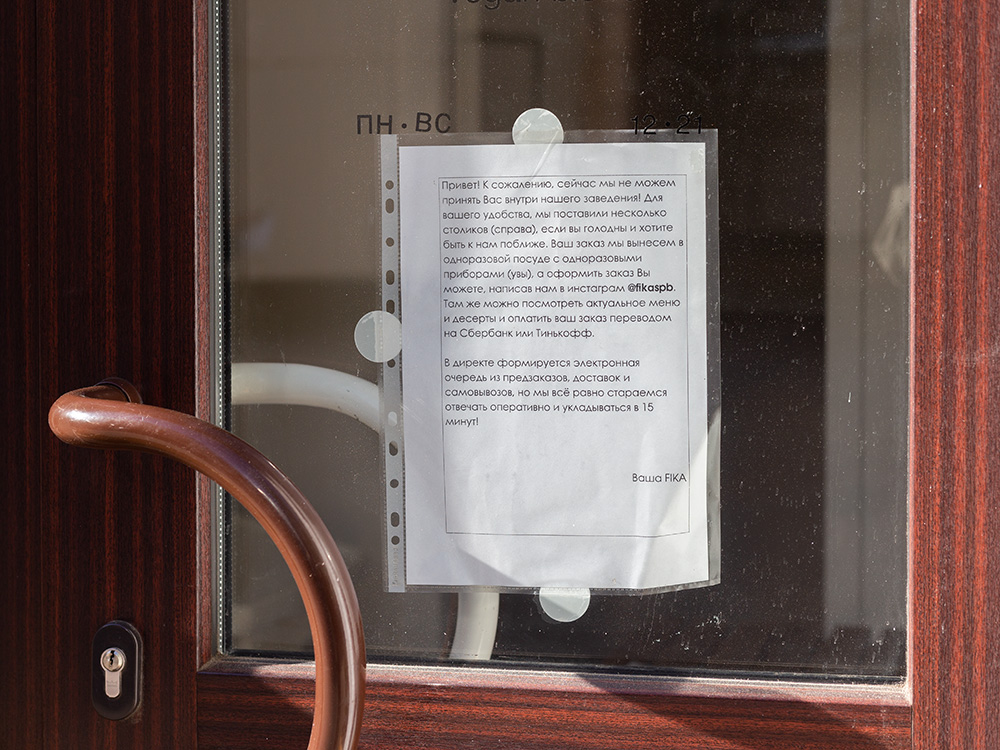 ПН·ВС 12·21
Привет! К сожалению, сейчас мы не можем
принять Вас внутри нашего заведения! Для
вашего удобства, мы поставили несколько
столиков (справа), если вы голодны и хотите
быть к нам поближе. Ваш заказ мы вынесем в
одноразовой посуде с одноразовыми
приборами (увы), а оформить заказ Вы
можете, написав нам в инстаграм @fikaspb.
Там же можно посмотреть актуальное меню
и десерты и оплатить ваш заказ переводом
на Сбербанк или Тинькофф.
В директе формируется электронная
очередь из предзаказов, доставок и
самовывозов, но мы всё равно стараемся
отвечать оперативно и укладываться в 15
минут!
Ваша FIKA